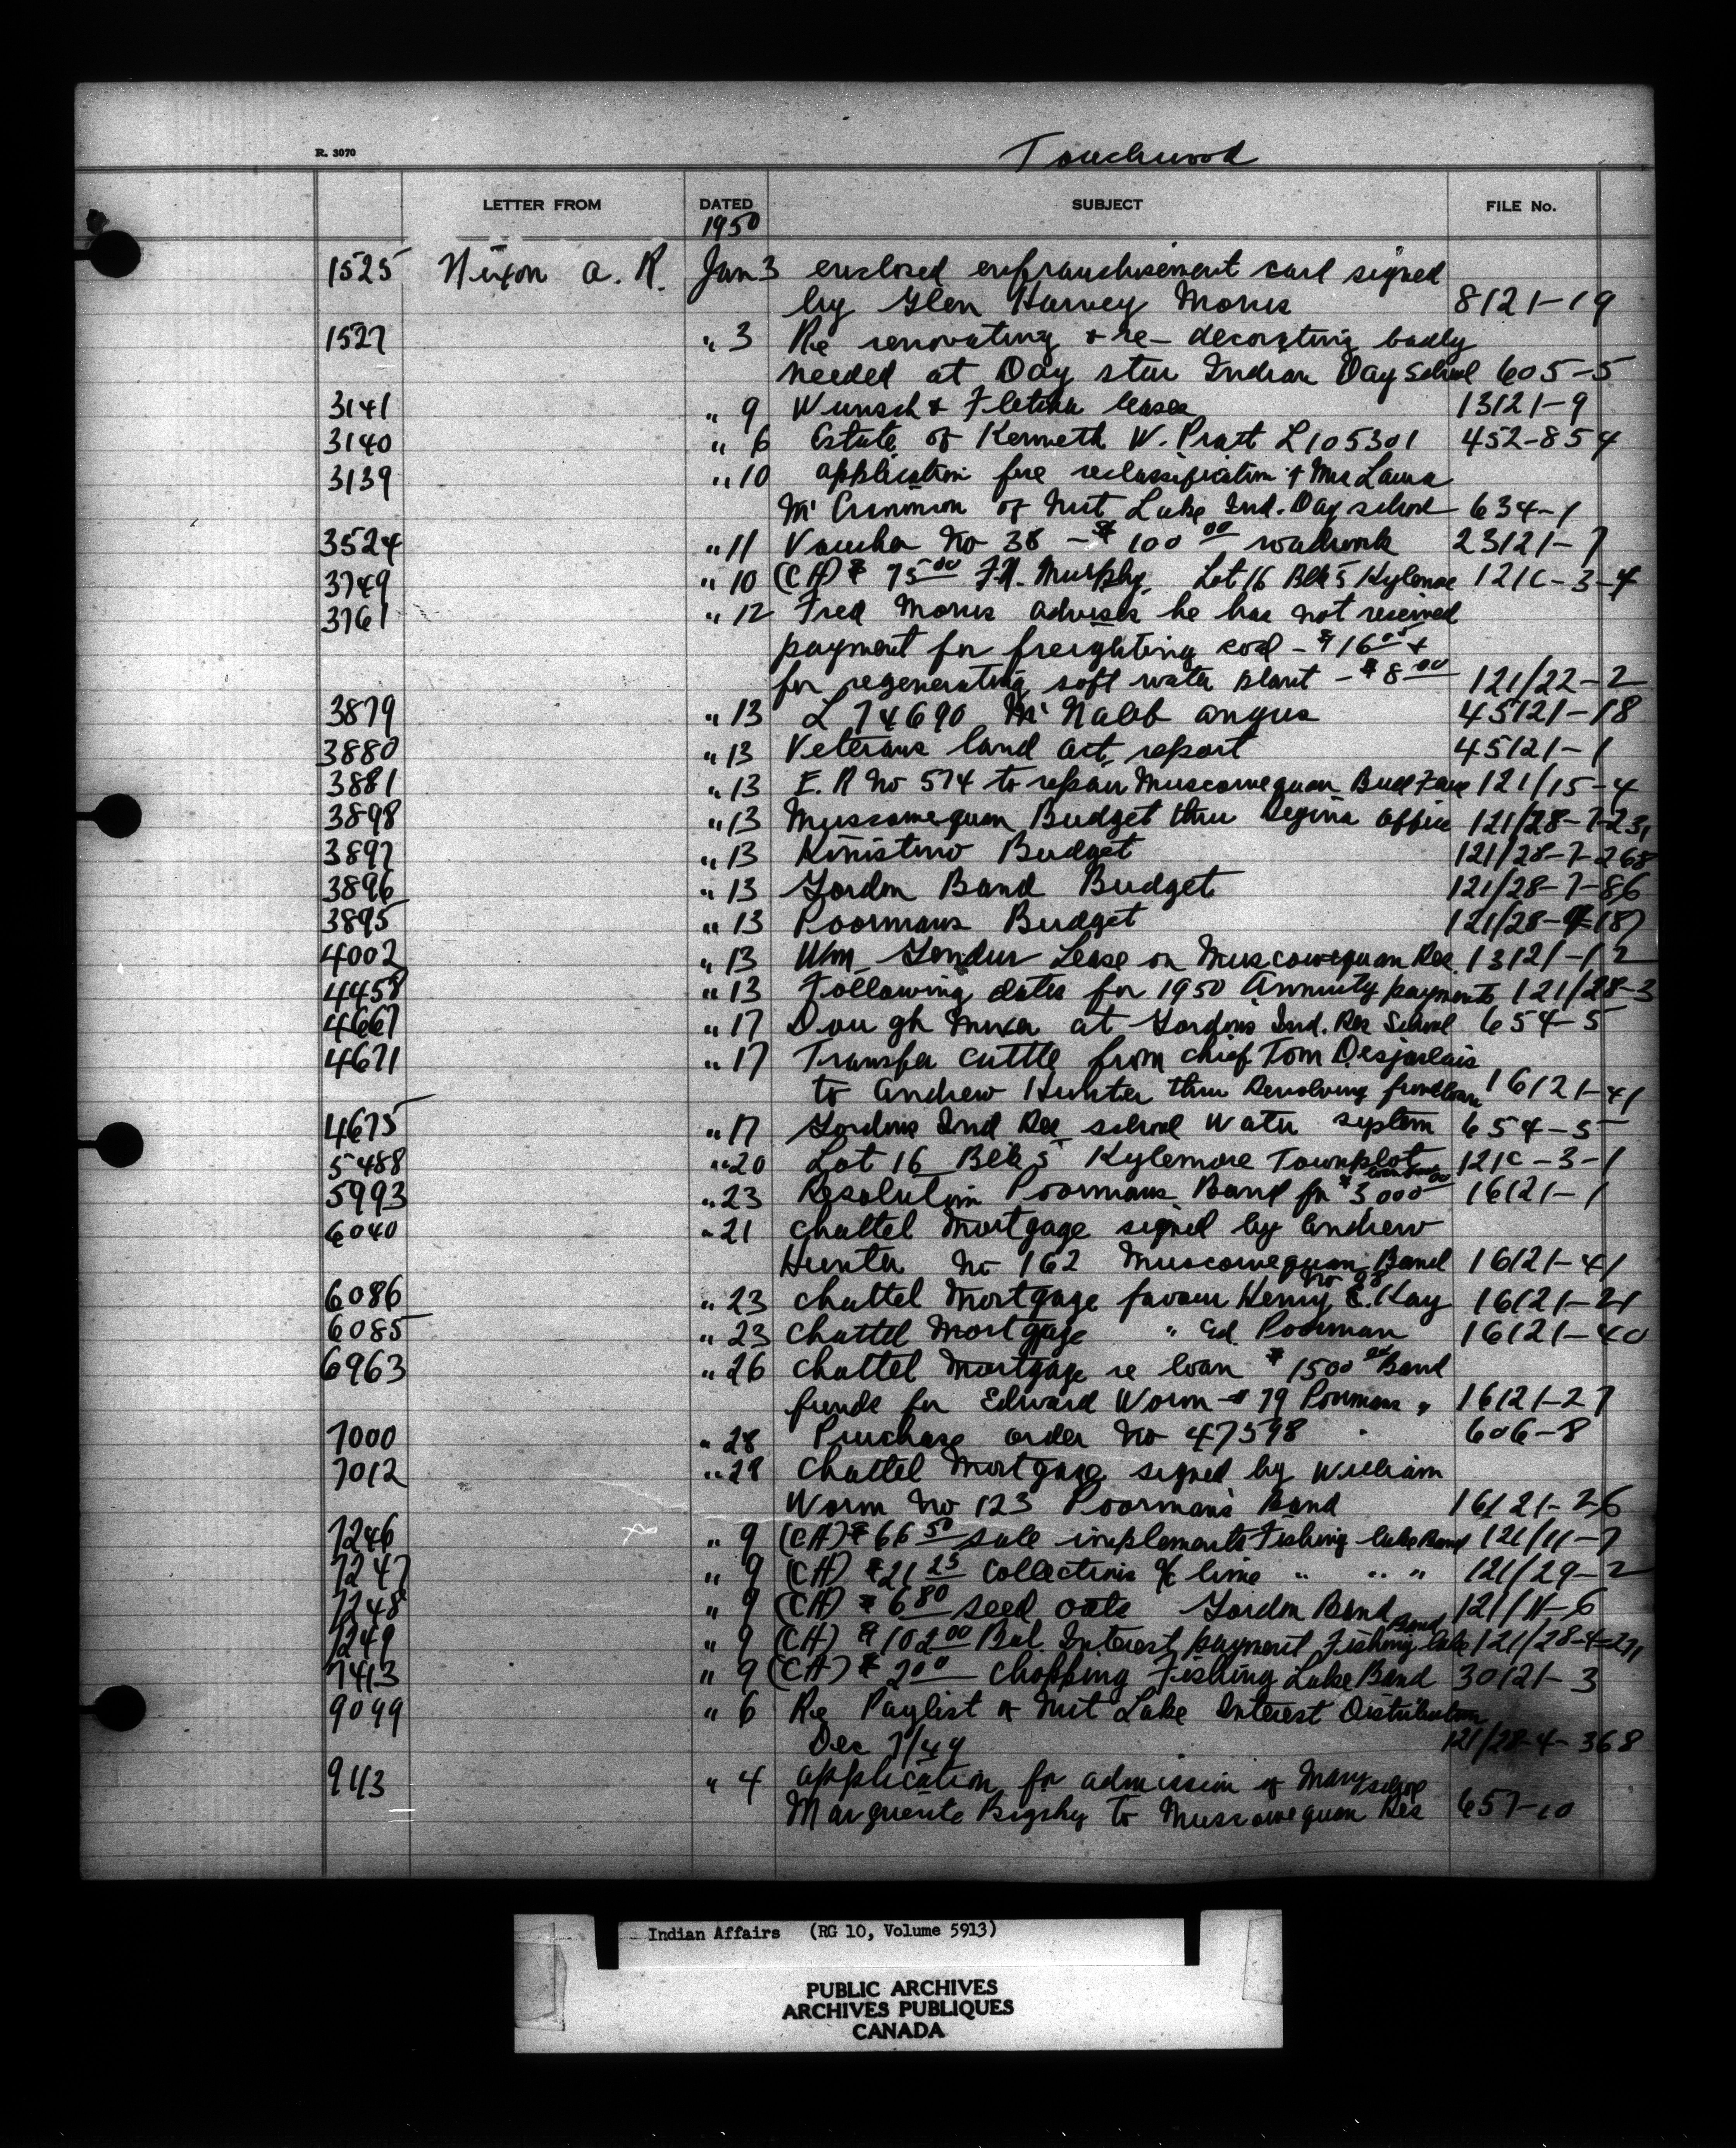 R. 3070
Touchwood
LETTER FROM DATED SUBJECT FILE No.
1950
1525 Nixon A. R. Jan 3 enclosed enfranchisement card signed
by Glen Harvey Morris 8121-19
1527 " 3 Re renovating & re-decorating badly
needed at Day Star Indian Day School 605-5
3141 " 9 Wunsch & leases 13121-9
3140 " 6 Estate of Kenneth W. Pratt L105301 452-854
3139 " 10 application for reclassification of Mrs Laura
McCrimmon of Nut Lake Ind. Day school 634-1
3524 " 11 Voucher No 38 - $100 00 roadwork 23121-7
3749 " 10 (CH) $ 75 00 Murphy, Lot 16 Blk 5 Kylemore 121C-3-4
3761 " 12 Fred Morris advises he has not received
payment for freighting coal - $16 00 &
for regenerating soft water plant - $8 00 121/22-2
3879 " 13 L 74690 McNabb Angus 45121-18
3880 " 13 Veterans land act, report 45121-1
3881 " 13 E.R No 574 to repair Muscowequan 121/15-4
3898 " 13 Muscowequan Budget thru Regina office 121/28-7-231
3897 " 13 Kinistino Budget 121/28-7-268
3896 " 13 Gordon Band Budget 121/28-7-86
3895 " 13 Poormans Budget 121/28-7-187
4002 " 13 Wm Lease on Muscowequan Res. 13121-12
4458 " 13 Following dates for 1950 Annuity payments 121/28-3
4667 " 17 Dough Mixer at Gordons Ind. Res School 654-5
4671 " 17 Transfer cattle from chief Tom Desjarlais
to Andrew Hunter thru Revolving fund loan 16121-41
4675 " 17 Gordons Ind Res school water system 654-5
5488 " 20 Lot 16 Blk 5 Kylemore Townplot 121C-3-1
5993 " 23 Resolution Poormans Band for $3000 00 16121-1
6040 " 21 Chattel Mortgage signed by Andrew
Hunter No 162 Muscowequan Band 16121-41
6086 " 23 Chattel Mortgage favour Henry E. Kay No 98 16121-21
6085 " 23 Chattel Mortgage " Ed. Poorman 16121-40
6963 " 26 Chattel Mortgage re loan $1500 00 Band
funds for Edward Worm # 79 Poormans " 16121-27
7000 " 28 Purchase order No 47598 606-8
7012 " 28 Chattel Mortgage signed by William
Worm No 123 Poorman's Band 16121-26
7246 " 9 (CH) $66 50 sale implements Fishing lake Band 121/11-7
7247 " 9 (CH) $21 25 Collections a/c lime " " " 121/29-2
7248 " 9 (CH) $6 80 seed oats Gordon Band 121/11-6
7249 " 9 (CH) $102 00 Bal. Interest payment Fishing lake Band 121/28-4-271
7413 " 9 (CH) $2 00 Chopping Fishing Lake Band 30121-3
9099 " 6 Re Paylist of Nut Lake Interest Distribution
Dec 7/49 121/28-4-368
9113 " 4 application for admission of Mary
Marguerite Bigsky to Muscowequan Res school 657-10
Indian Affairs (RG 10, Volume 5913)
PUBLIC ARCHIVES
ARCHIVES PUBLIQUES
CANADA